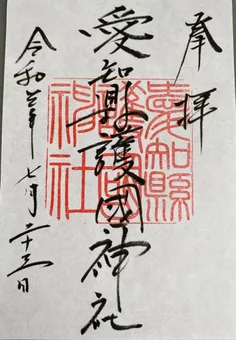 奉拝
愛知縣護國神社
愛知縣護國神社
令和三年七月二十三日